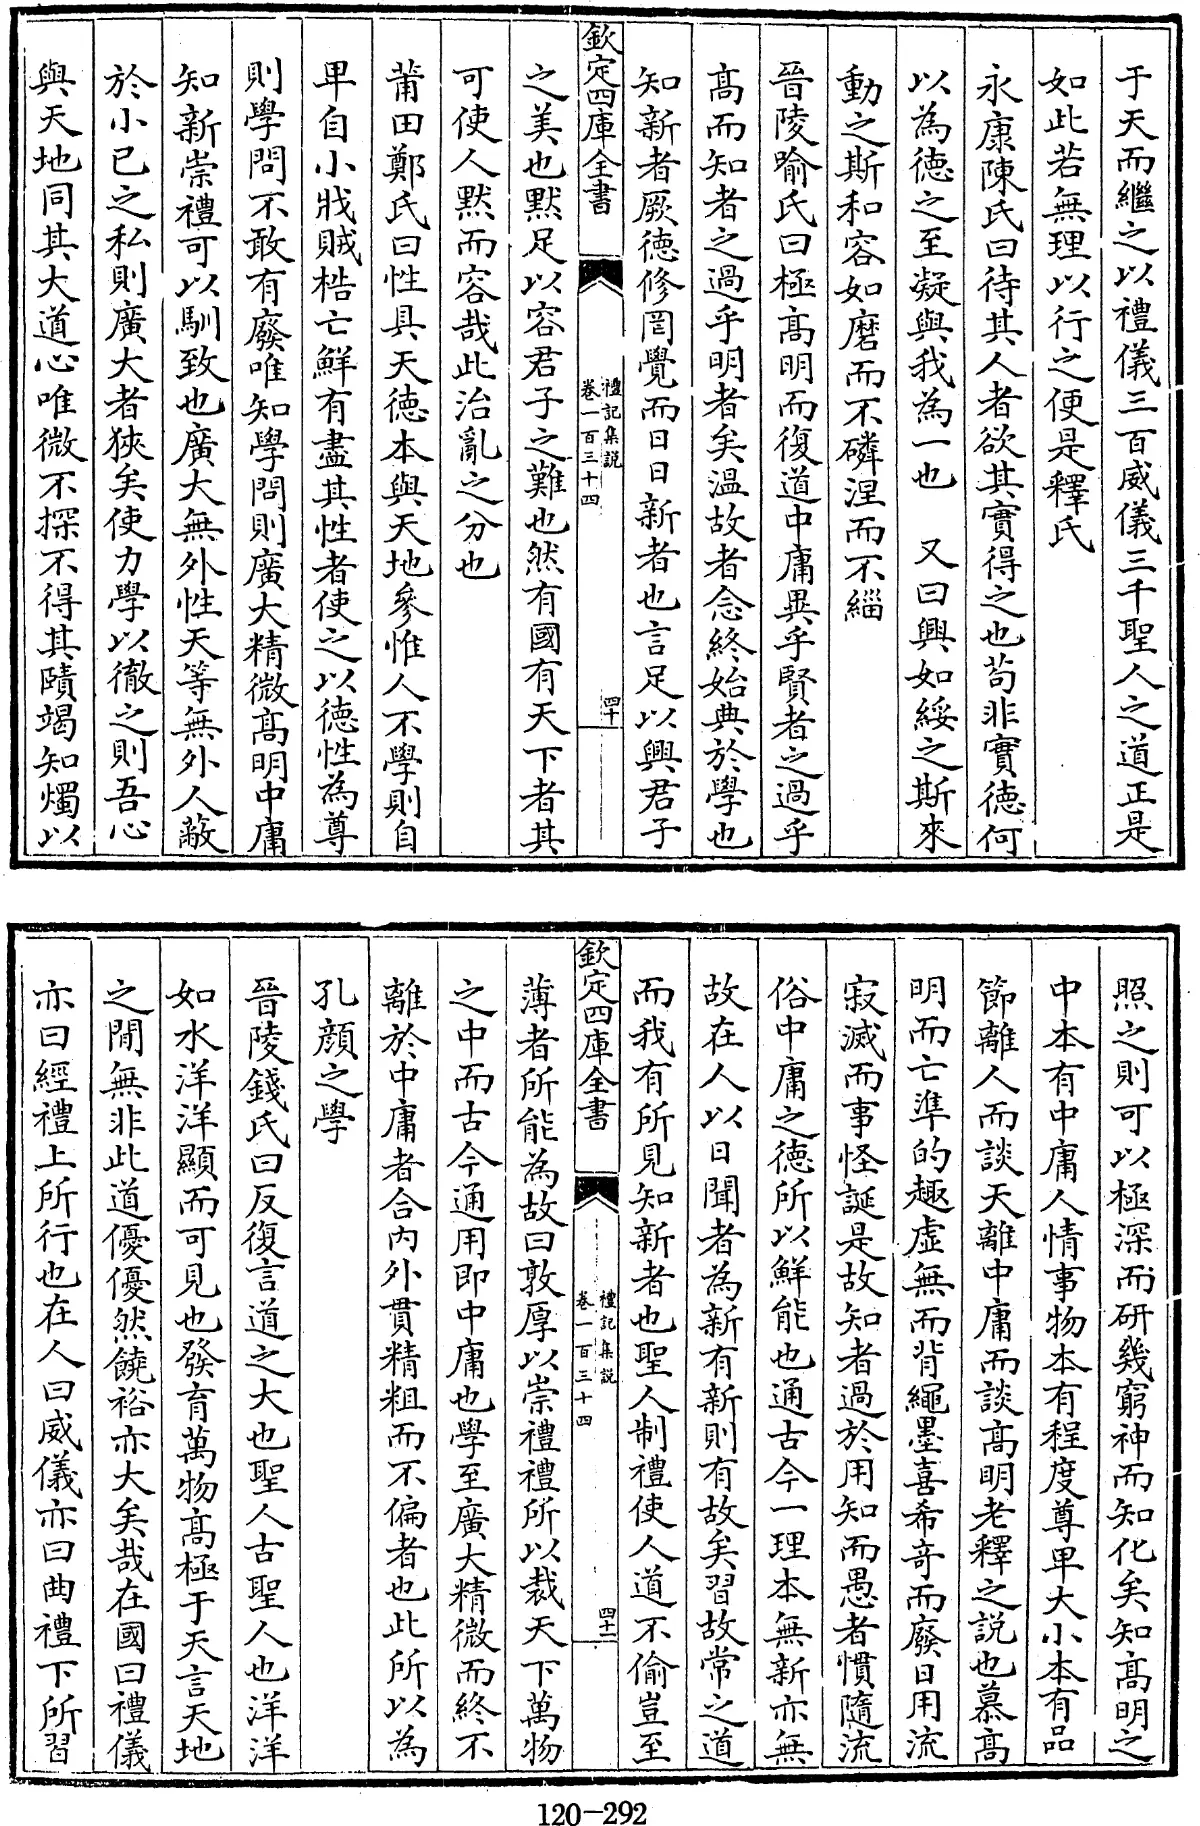 于天而繼之以禮儀三百威儀三千聖人之道正是
如此若無理以行之便是釋氏
永康陳氏曰待其人者欲其實得之也茍非實德何
以為德之至凝與我為一也　又曰興如綏之斯來
動之斯和容如磨而不磷涅而不緇
晉陵喻氏曰極髙明而復道中庸異乎賢者之過乎
髙而知者之過乎明者矣溫故者念終始典於學也
知新者厥德修罔覺而日日新者也言足以興君子
欽定四庫全書
禮記集說
卷一百三十四
四十
之美也默足以容君子之難也然有國有天下者其
可使人默而容哉此治亂之分也
莆田鄭氏曰性具天德本與天地參惟人不學則自
卑自小戕賊梏亡鮮有盡其性者使之以德性為尊
則學問不敢有廢唯知學問則廣大精微髙明中庸
知新崇禮可以馴致也廣大無外性天等無外人蔽
於小已之私則廣大者狹矣使力學以徹之則吾心
與天地同其大道心唯微不探不得其賾竭知燭以
照之則可以極深而研幾窮神而知化矣知髙明之
中本有中庸人情事物本有程度尊卑大小本有品
節離人而談天離中庸而談髙明老釋之說也慕髙
明而亡準的趣虛無而背繩墨喜希竒而廢日用流
寂滅而事怪誕是故知者過於用知而愚者慣隨流
俗中庸之德所以鮮能也通古今一理本無新亦無
故在人以日聞者為新有新則有故矣習故常之道
而我有所見知新者也聖人制禮使人道不偷豈至
欽定四庫全書
禮記集說
卷一百三十四
四十一
薄者所能為故曰敦厚以崇禮禮所以裁天下萬物
之中而古今通用即中庸也學至廣大精微而終不
離於中庸者合內外貫精粗而不偏者也此所以為
孔顔之學
晉陵錢氏曰反復言道之大也聖人古聖人也洋洋
如水洋洋顯而可見也發育萬物髙極于天言天地
之閒無非此道優優然饒裕亦大矣哉在國曰禮儀
亦曰經禮上所行也在人曰威儀亦曰曲禮下所習
120-292